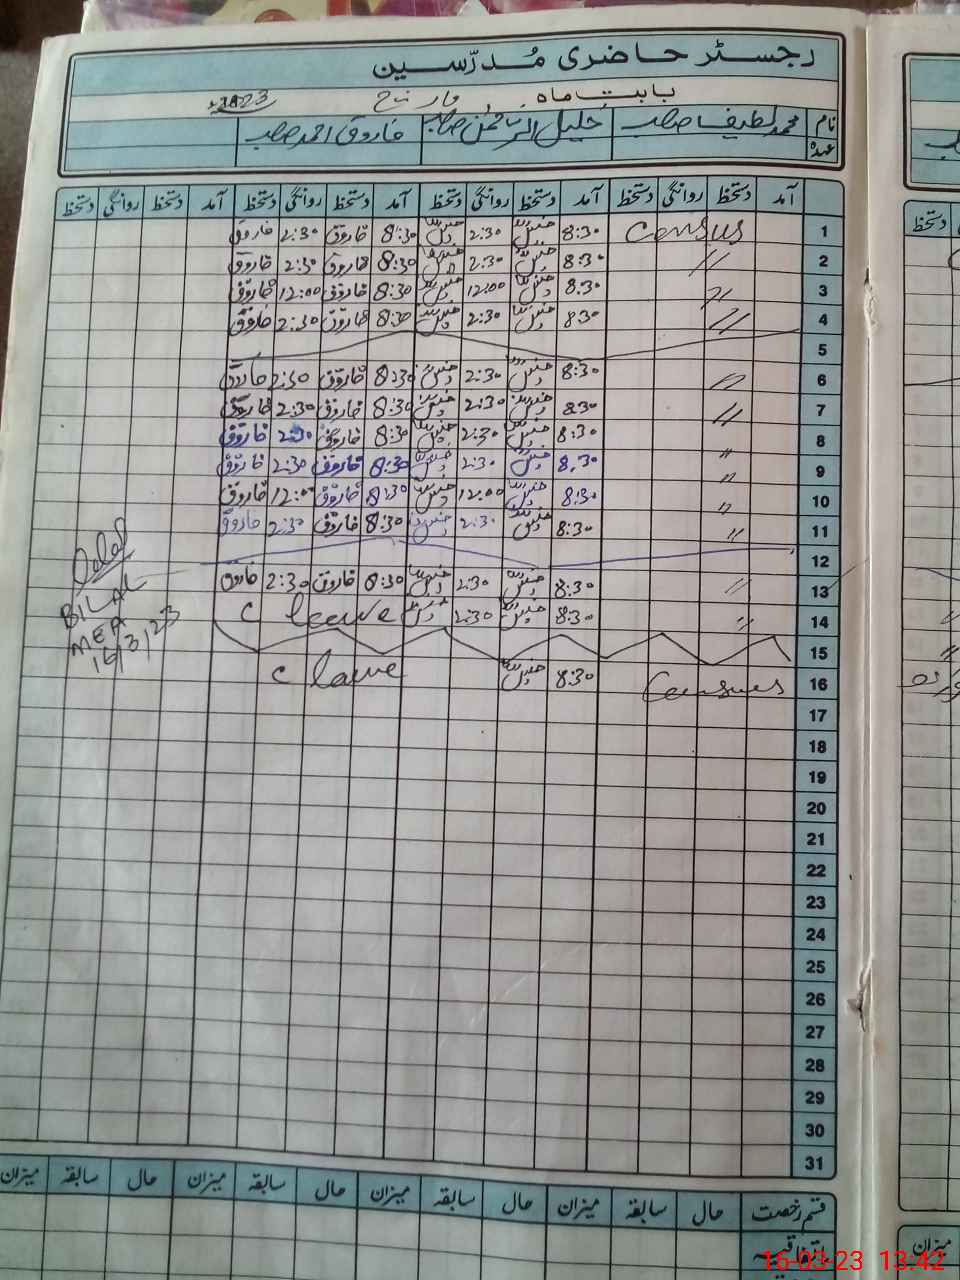 رجسٹر حاضری مُدرّسین
بابت ماہ مارچ 2023ء
نام محمد لطیف صاحب خلیل الرحمٰن صاحب فاروق احمد صاحب
عہدہ
آمد دستخط روانگی دستخط آمد دستخط روانگی دستخط آمد دستخط روانگی دستخط آمد دستخط روانگی دستخط
1 Census 8:30 2:30 8:30 فاروق 2:30 فاروق
2 // 8:30 2:30 8:30 فاروق 2:30 فاروق
3 // 8:30 12:00 8:30 فاروق 12:00 فاروق
4 // 8:30 2:30 8:30 فاروق 2:30 فاروق
5
6 // 8:30 2:30 8:30 فاروق 2:30 فاروق
7 // 8:30 2:30 8:30 فاروق 2:30 فاروق
8 // 8:30 2:30 8:30 فاروق 2:30 فاروق
9 // 8:30 2:30 8:30 فاروق 2:30 فاروق
10 // 8:30 12:00 8:30 فاروق 12:00 فاروق
11 // 8:30 2:30 8:30 فاروق 2:30 فاروق
12
13 // 8:30 2:30 8:30 فاروق 2:30 فاروق
14 // 8:30 2:30 C leave
15
16 Census 8:30 C leave
BILAL
MEA
16/3/23
17
18
19
20
21
22
23
24
25
26
27
28
29
30
31
قسم رخصت حال سابقہ میزان حال سابقہ میزان حال سابقہ میزان حال سابقہ میزان
اتفاقیہ
دستخط
میزان
16-03-23 13:42